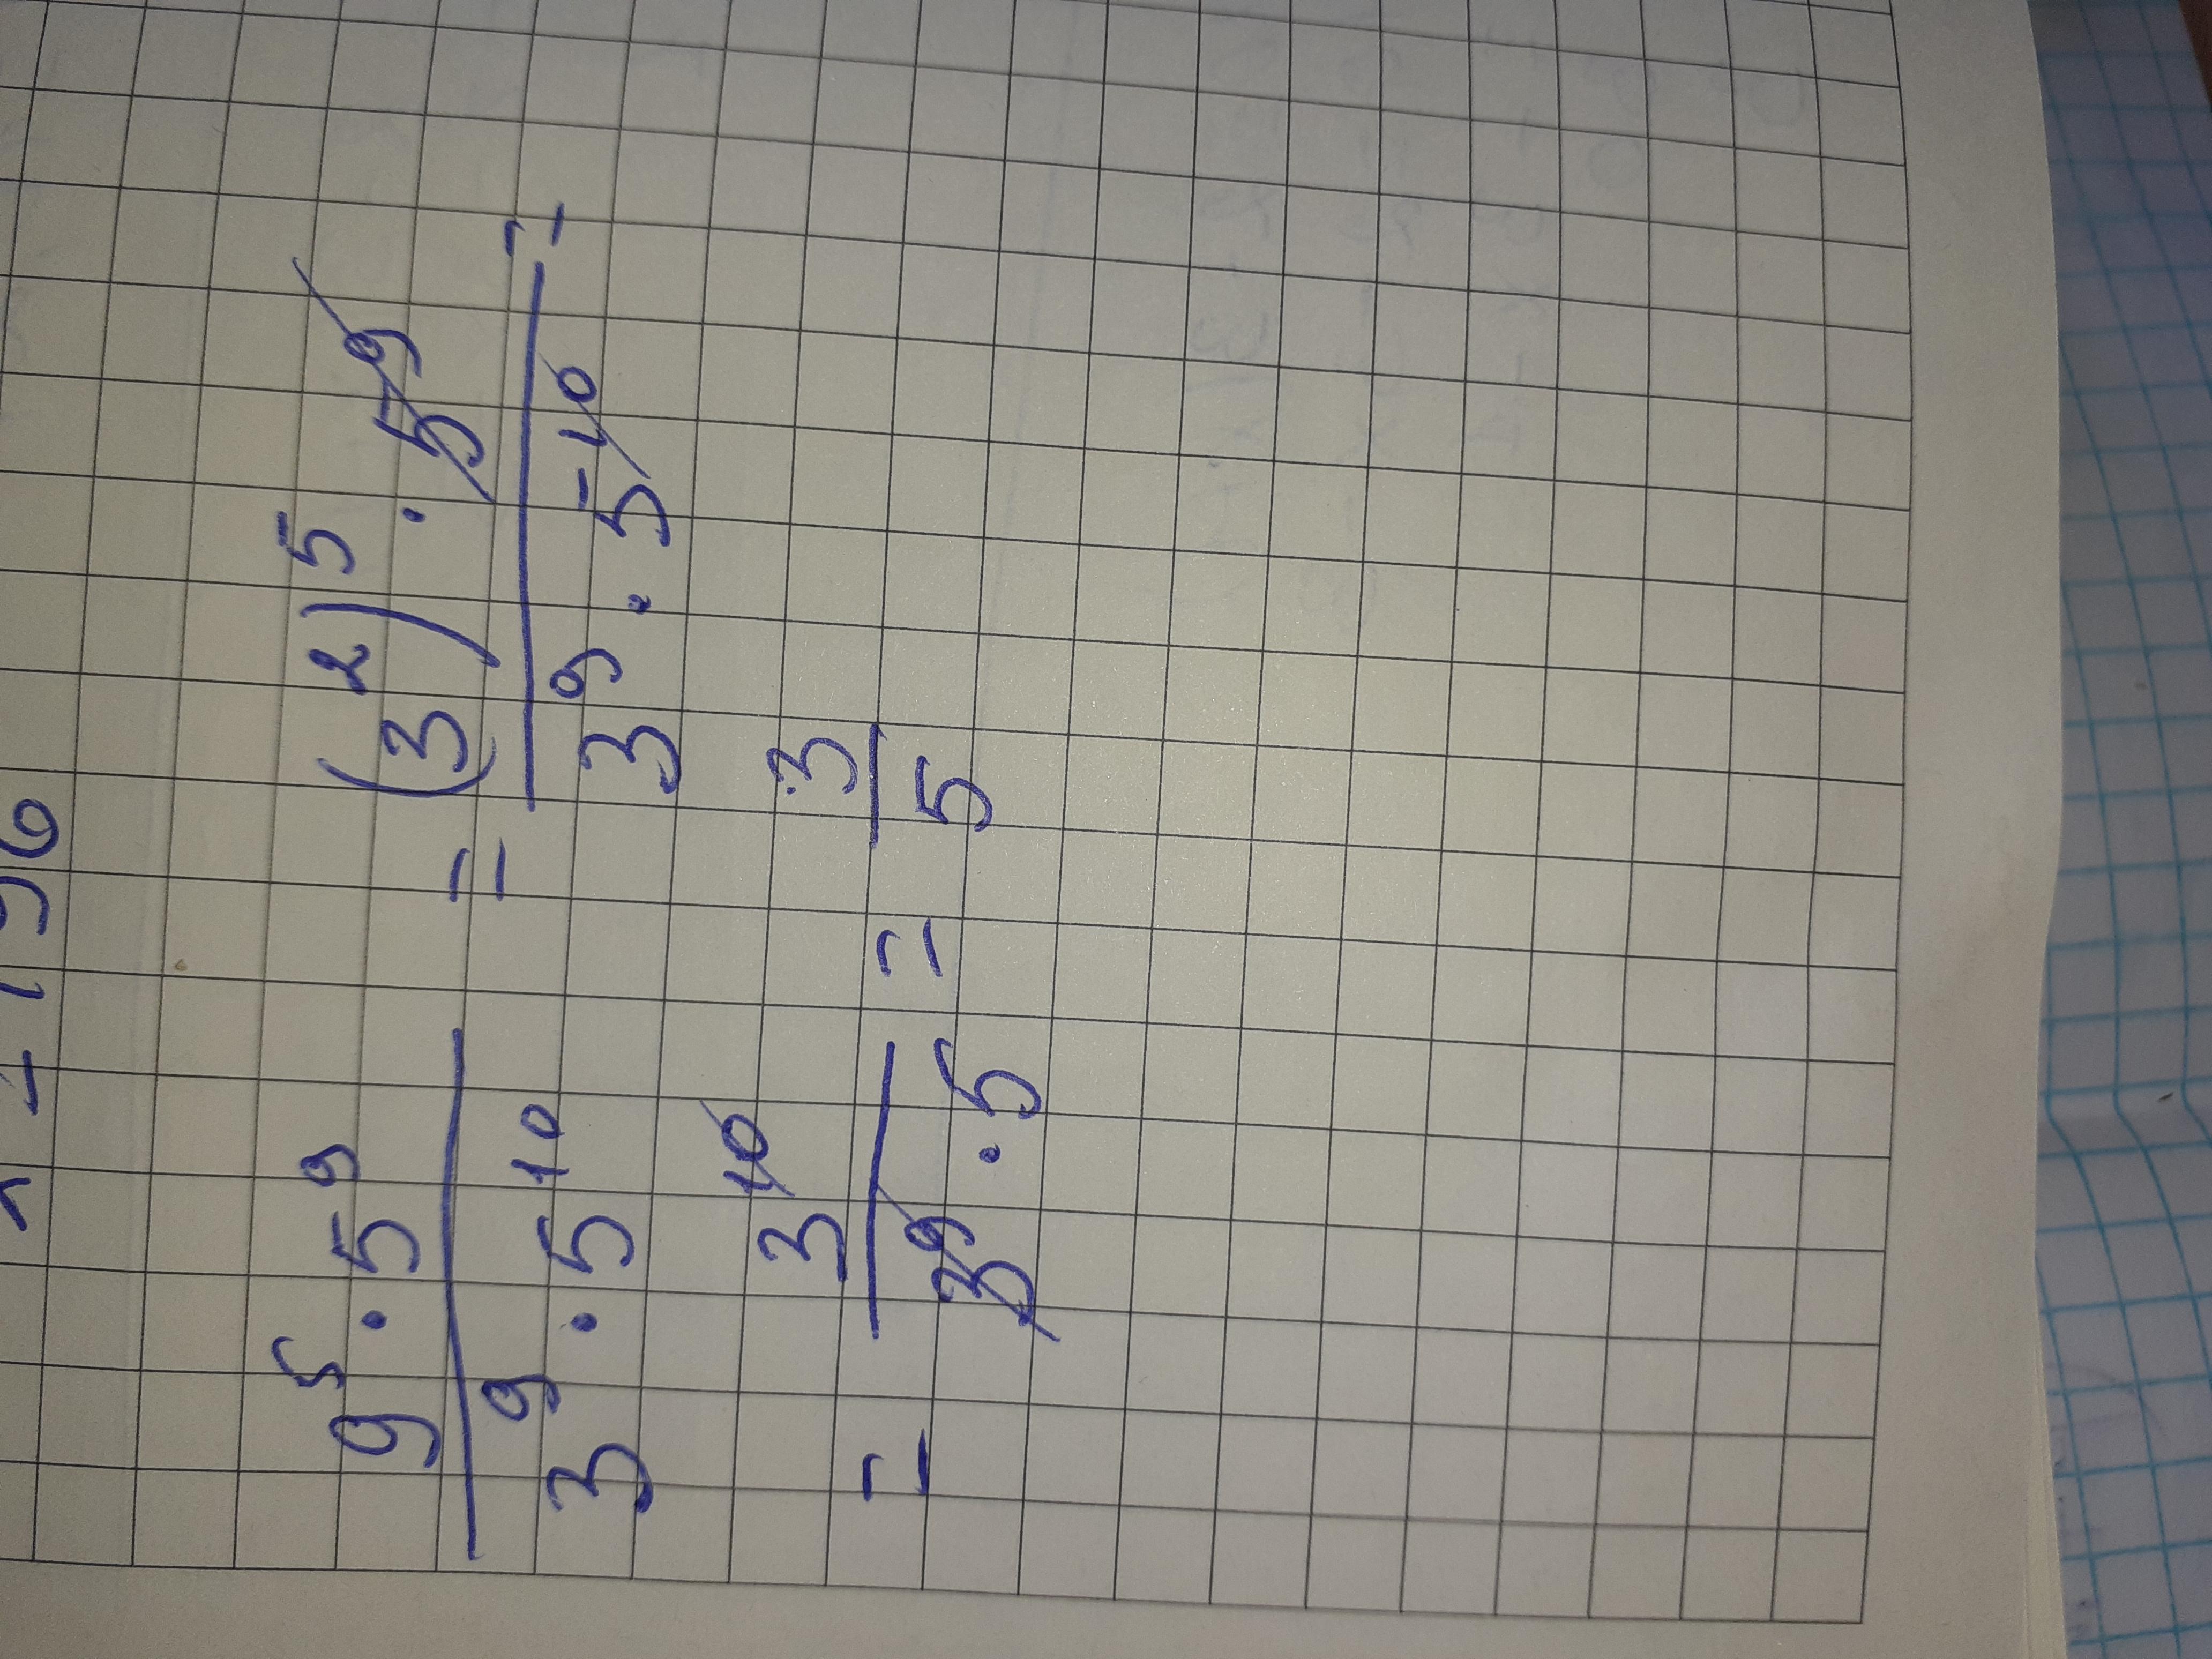 9⁵ · 5⁹ / 3⁹ · 5¹⁰ = (3²)⁵ · 5⁹ / 3⁹ · 5¹⁰ =
= 3¹⁰ / 3⁹ · 5 = 3 / 5